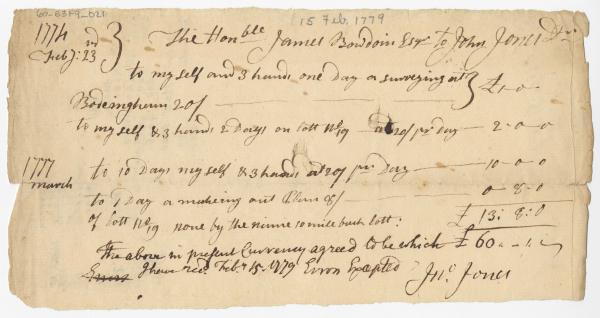 60-63F9-021
15 Feb. 1779
1774
Feby: 23rd } The Honble James Bowdoin Esqr to John Jones Dr
to my self and 3 hands one day a surveying at } £1-0-0
20/
to my self & 3 hands 2 Days on lott No 19 at 20/ pr day — 2-0-0
1777
march
to 10 Days my self & 3 hands at 20/ pr Day — 10-0-0
to 1 Day a makeing out Plan 8/ 0-8-0
of lott No 19 none by the nine mile back lott: £13:8:0
The above in present Currency agreed to be which £60
I have recd Febr 15. 1779 Errors Excepted
Jno Jones